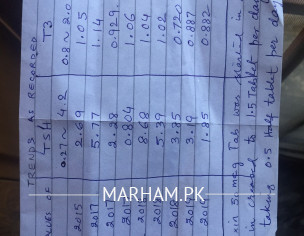 TRENDS AS RECORDED
VALUES OF TSH T3
0.27~4.2 0.8~2.0
2015 2.69 1.05
2017 5.77 1.14
2017 2.28 0.929
2017 0.804 1.06
2017 8.68 1.04
2017 5.39 1.02
2018 3.75 0.720
3.19 0.887
1.95 0.882
5 mcg Tab was started in
increased to 1.5 Tablet per day
taking 0.5 Half tablet per day
MARHAM.PK